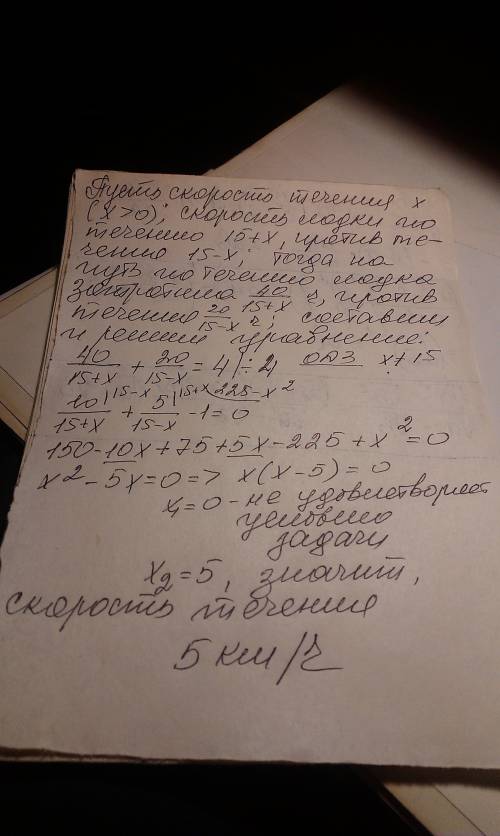 Пусть скорость течения x
(x>0); скорость лодки по
течению 15+x, против те-
чению 15-x; тогда на
путь по течению лодка
затратила 40/(15+x) ч, против
течения 20/(15-x) ч; составим
и решим уравнение:
40/(15+x) + 20/(15-x) = 4 | ÷ 4 ОДЗ x≠15
10|15-x/(15+x) + 5|15+x/(15-x) - 1|225-x² = 0
150-10x+75+5x-225+x²=0
x²-5x=0 => x(x-5)=0
x₁=0 - не удовлетворяет
условию
задачи
x₂=5, значит,
скорость течения
5 км/ч